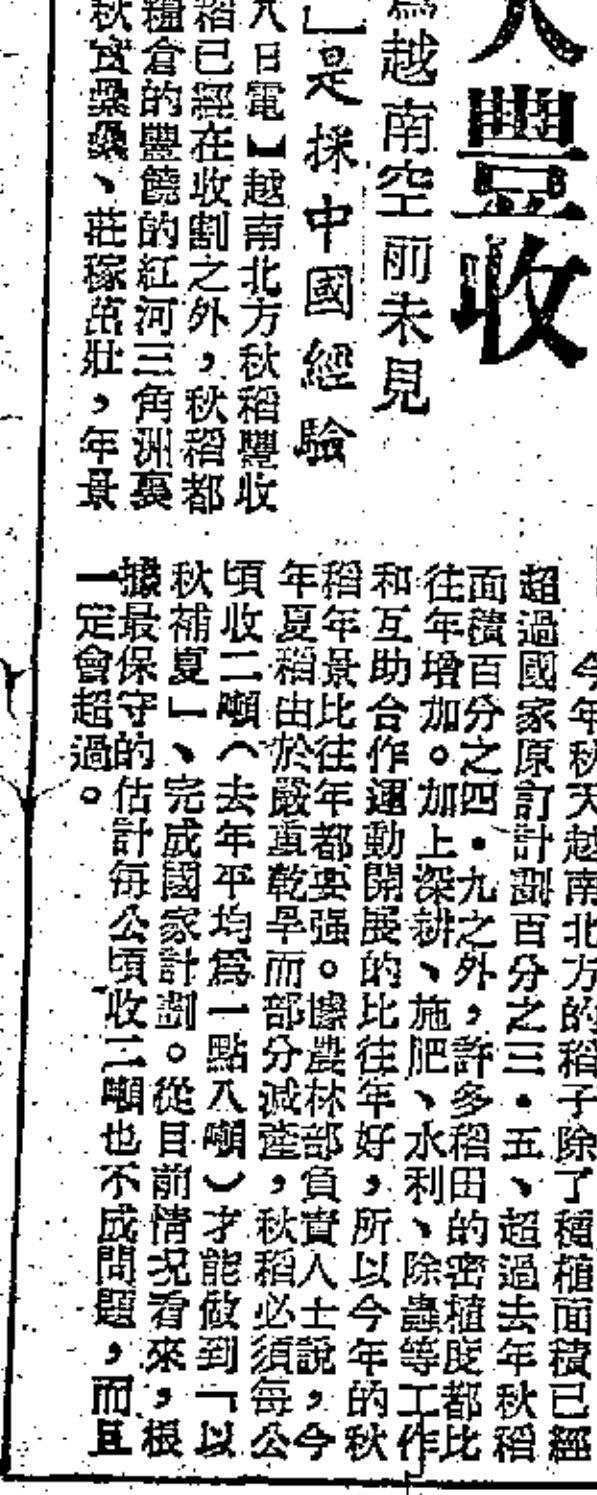 豐收
越南空前未見
是採中國經驗
八日電】越南北方秋稻豐收
稻已經在收割之外，秋稻都
糧倉的豐饒的紅河三角洲裏
秋實纍纍、莊稼茁壯，年景
今年秋天越南北方的稻子除了種植面積已經
超過國家原訂計劃百分之三・五、超過去年秋稻
面積百分之四・九之外，許多稻田的密植度都比
往年增加。加上深耕、施肥、水利、除蟲等工作
和互助合作運動開展的比往年好，所以今年的秋
稻年景比往年都要强。據農林部負責人士說，今
年夏稻由於嚴重乾旱而部分減產，秋稻必須每公
頃收二噸（去年平均爲一點八噸）才能做到「以
秋補夏」、完成國家計劃。從目前情況看來，根
據最保守的估計每公頃收二噸也不成問題，而且
一定會超過。